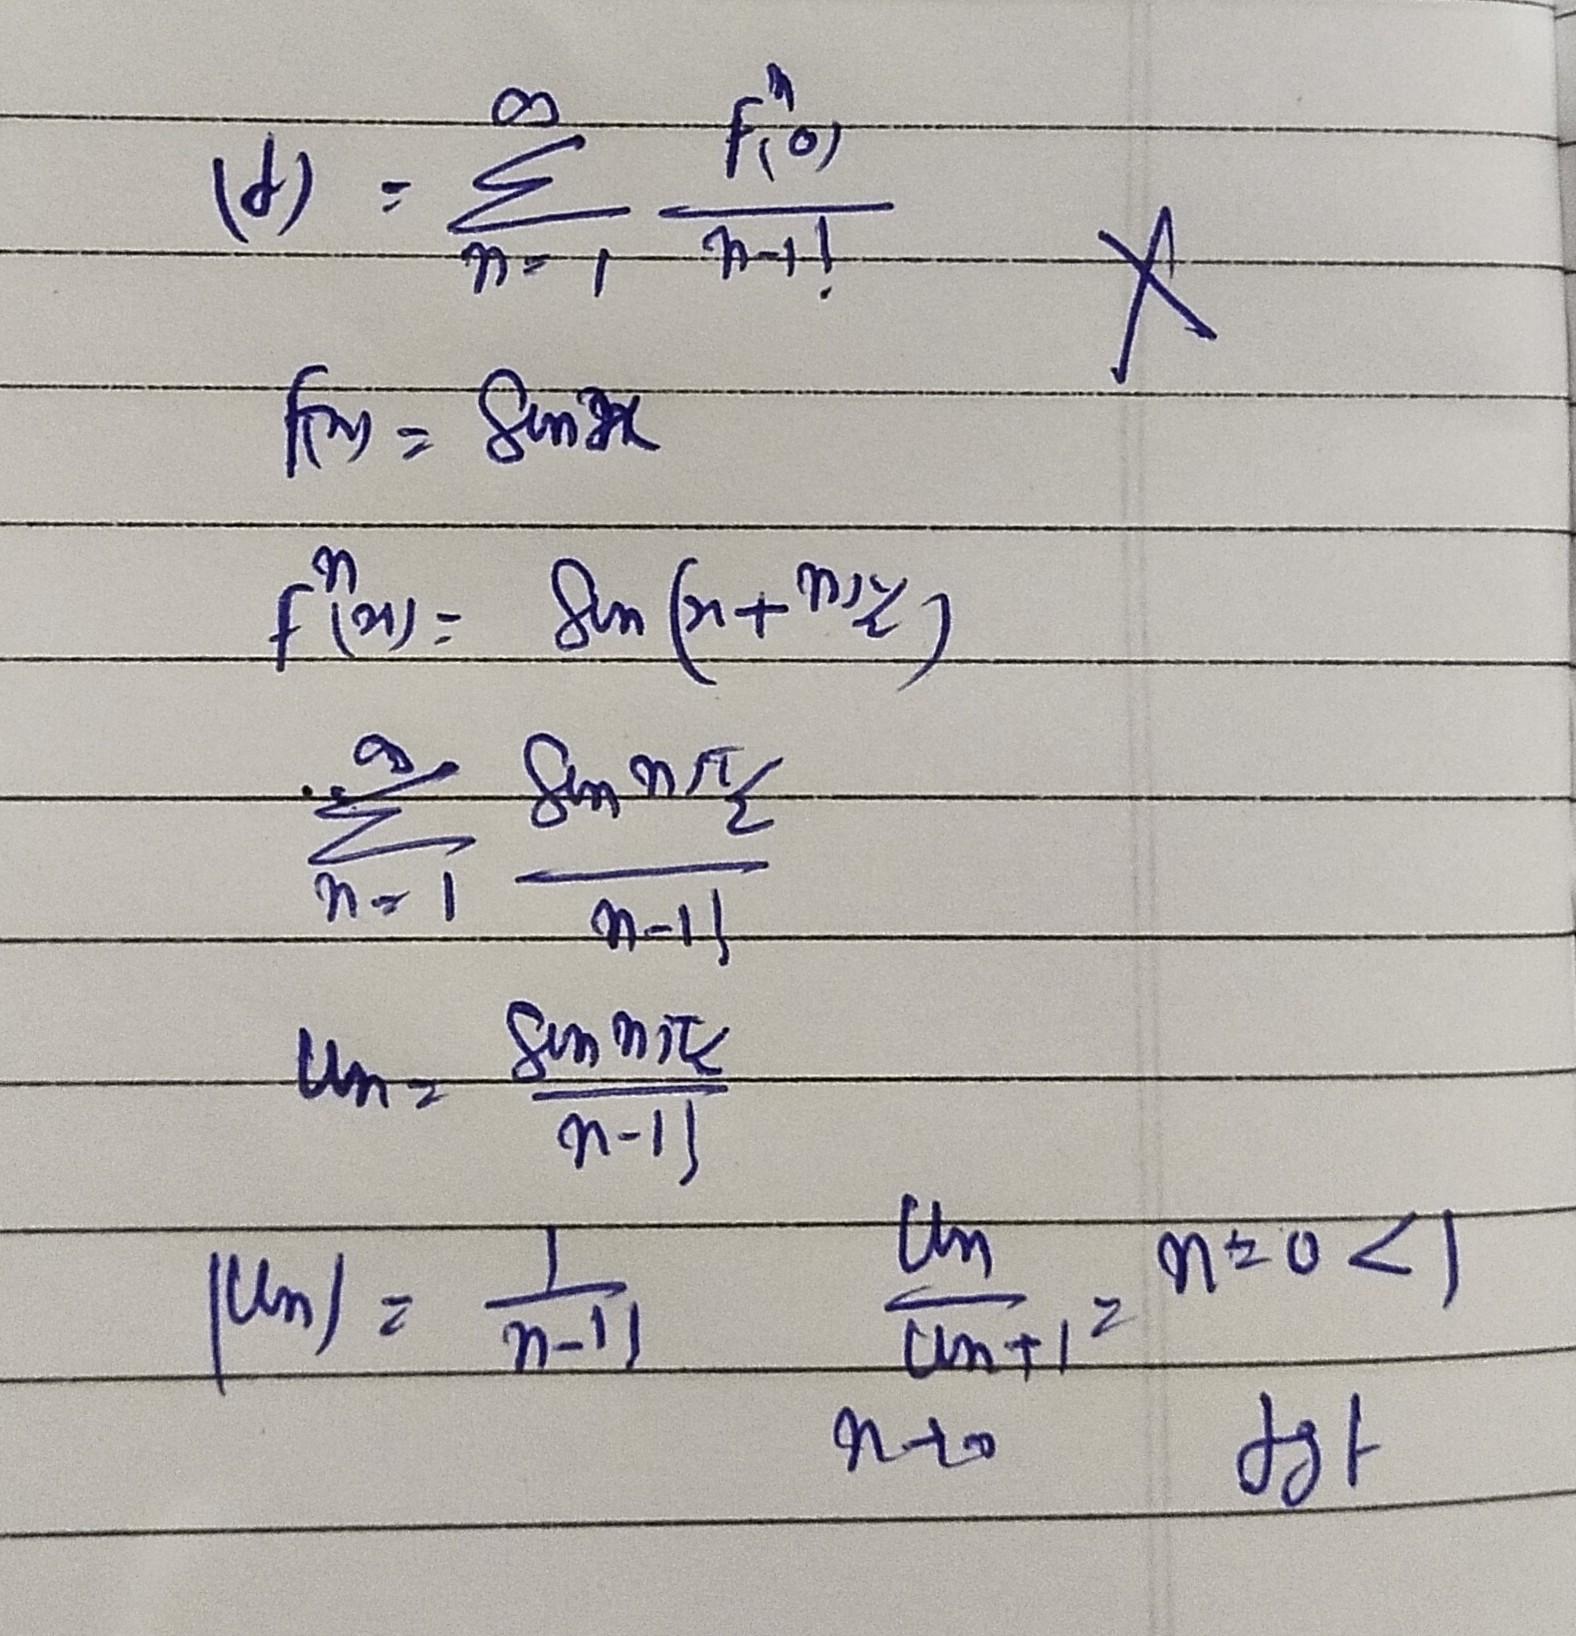 (d) = ∞ Σ n=1 fⁿ(0) / n-1! X
f(x) = Sin x
fⁿ(x) = Sin (x + nπ/2)
∞ Σ n=1 Sin nπ/2 / n-1!
Un = Sin nπ/2 / n-1!
|Un| = 1 / n-1! Un / Un+1 = n = 0 < 1
n→∞ dgt